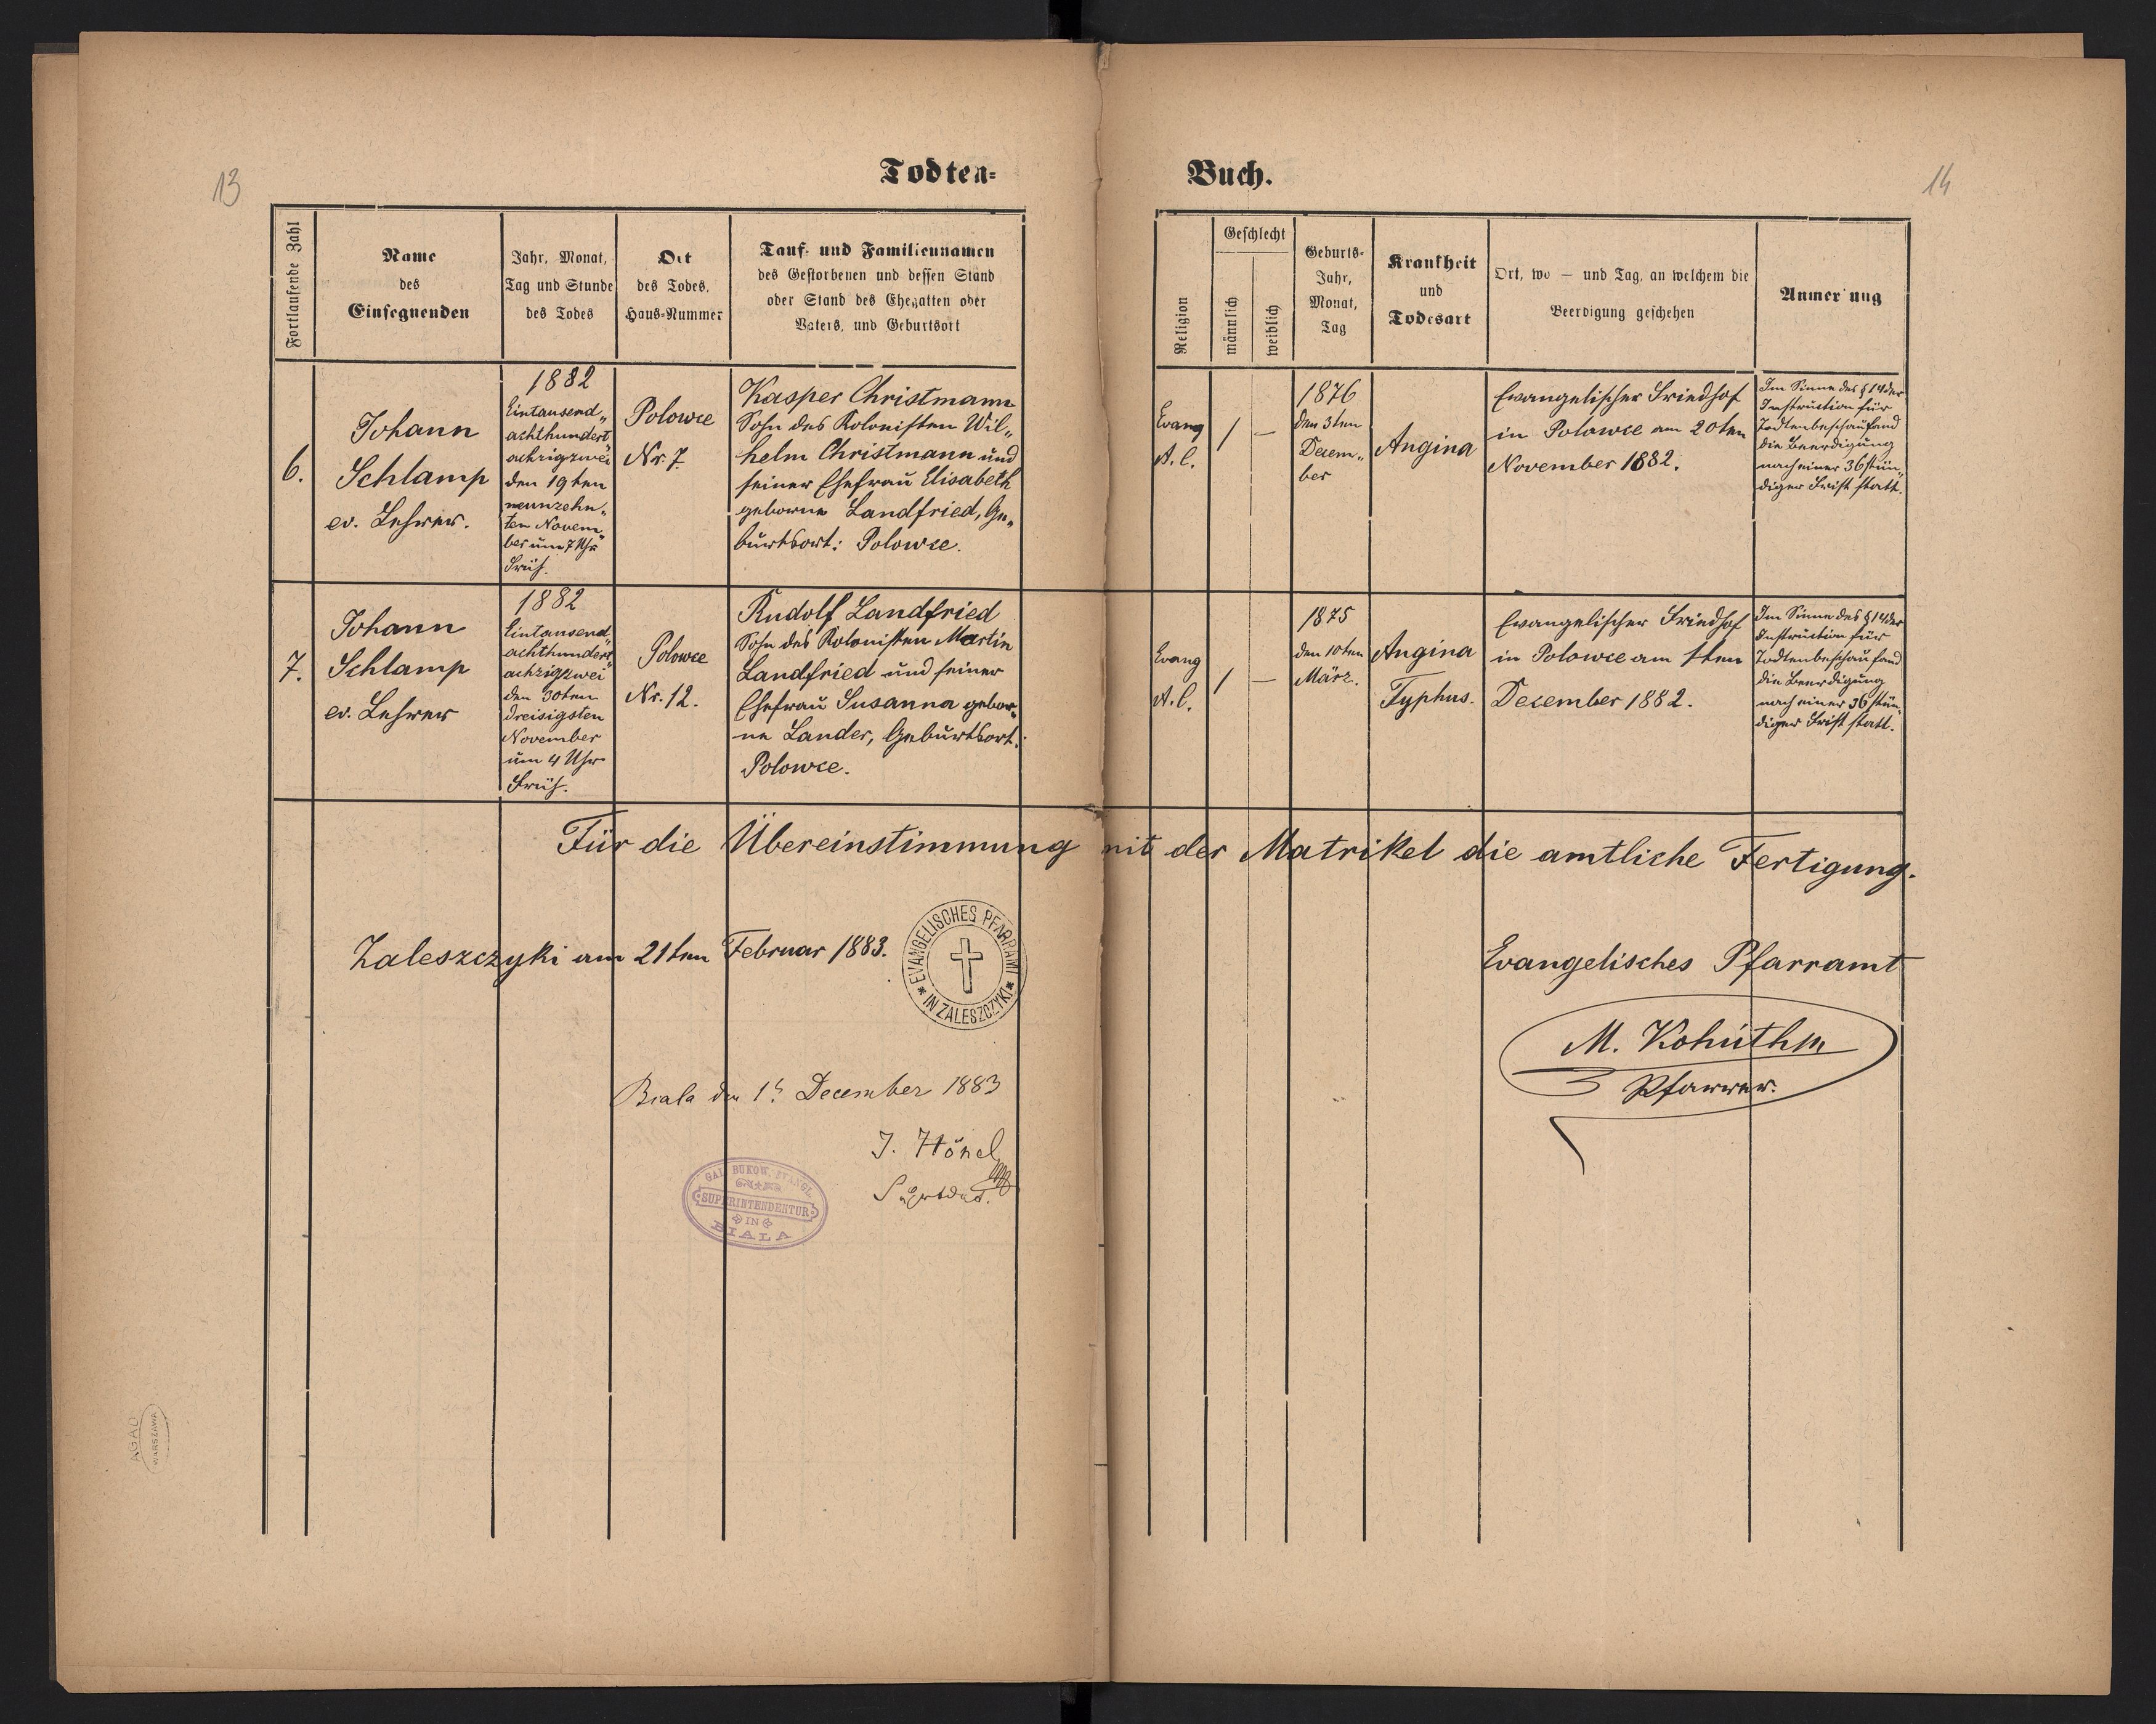 13
Todten=
Fortlaufende Zahl
Name
des
Einsegnenden
Jahr, Monat,
Tag und Stunde
des Todes
Ort
des Todes,
Haus-Nummer
Tauf- und Familiennamen
des Gestorbenen und dessen Stand
oder Stand des Ehegatten oder
Vaters, und Geburtsort
6.
Johann
Schlamp
ev. Lehrer.
1882
Eintausend„
achthundert„
achzigzwei
den 19ten
neunzehn„
ten Novem„
ber um 7 Uhr
Früh.
Polowce
Nr. 7.
Kasper Christmann
Sohn des Kolonisten Wil„
helm Christmann und
seiner Ehefrau Elisabeth
geborne Landfried, Ge„
burtsort: Polowce.
7.
Johann
Schlamp
ev. Lehrer
1882
Eintausend„
achthundert„
achzigzwei
den 30ten
dreisigsten
November
um 4 Uhr
Früh.
Polowce
Nr. 12.
Rudolf Landfried
Sohn des Kolonisten Martin
Landfried und seiner
Ehefrau Susanna gebor„
ne Lander, Geburtsort:
Polowce.
14
Buch.
Religion
Geschlecht
männlich
weiblich
Geburts-
Jahr,
Monat,
Tag
Krankheit
und
Todesart
Ort, wo — und Tag, an welchem die
Beerdigung geschehen
Anmer ung
Evang
A. C.
/
—
1876
den 3ten
Decem„
ber
Angina
Evangelischer Friedhof
in Polowce am 20ten
November 1882.
Im Sinne des § 14 der
Instruction für
Todtenbeschau fand
die Beerdigung
nach einer 36 stün„
diger Frist statt.
Evang
A. C.
/
—
1875
den 10ten
März.
Angina
Typhus.
Evangelischer Friedhof
in Polowce am 1ten
December 1882.
Im Sinne des § 14 der
Instruction für
Todtenbeschau fand
die Beerdigung
nach einer 36 stün„
diger Frist statt.
Für die Übereinstimmung mit der Matrikel die amtliche Fertigung.
Zaleszczyki am 21ten Februar 1883.
EVANGELISCHES PFARRAMT
IN ZALESZCZYKI
Evangelisches Pfarramt
M. Kohuth
Pfarrer.
Biala den 1t December 1883
J. Hönel
GAL. BUKOW. EVANGL.
SUPERINTENDENTUR
IN
BIALA
AGAD
WARSZAWA